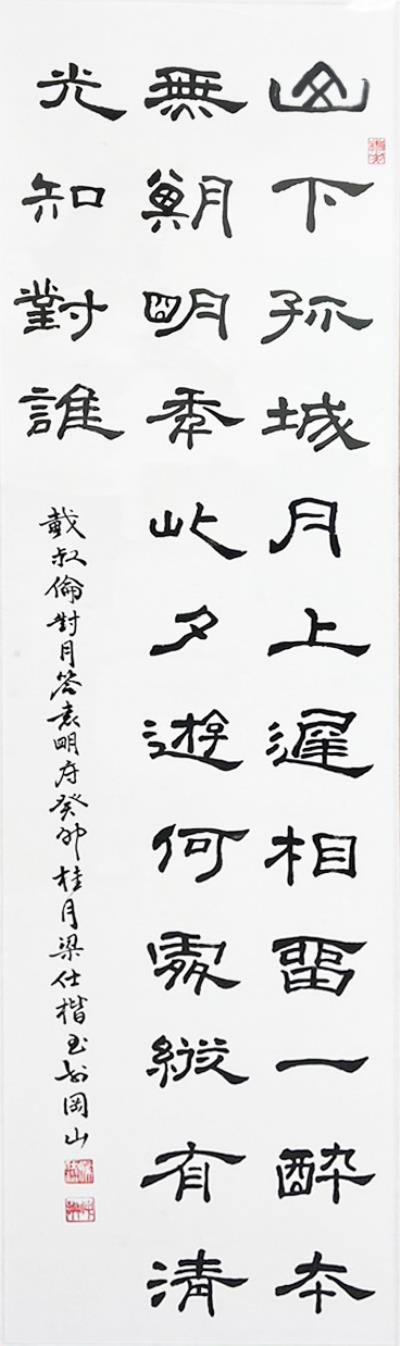 山下孤城月上遲相留一醉本
無期明年此夕遊何處縱有清
光知對誰
戴叔倫對月答袁明府癸卯桂月梁仕楷書於岡山